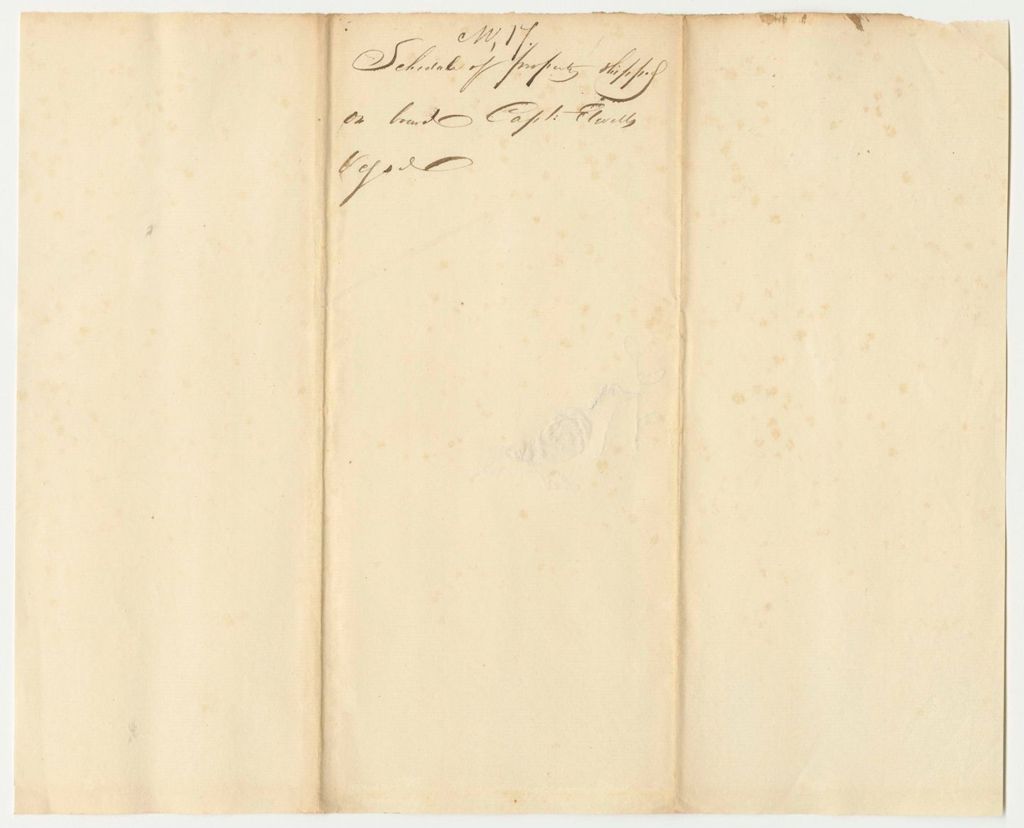 No. 17.
Schedule of property shipped
on board Capt. Elwells
Vessel